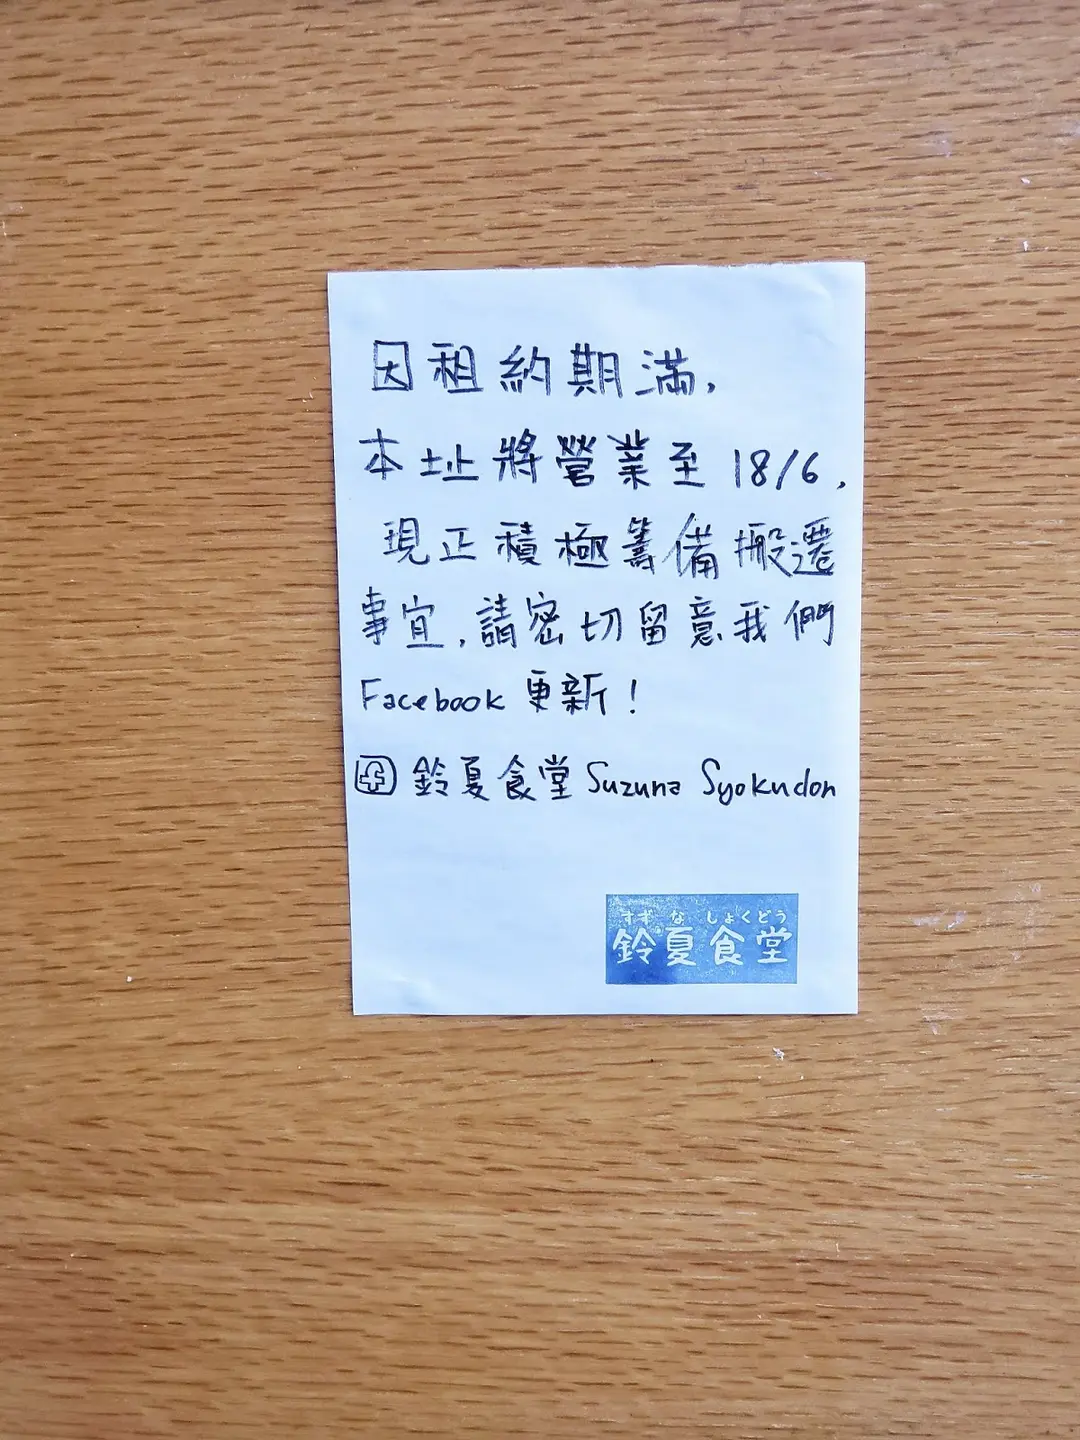 因租約期滿,
本址將營業至 18/6,
現正積極籌備搬遷
事宜,請密切留意我們
Facebook 更新!
鈴夏食堂 Suzuna Syokudon
すず な しょくどう
鈴夏食堂